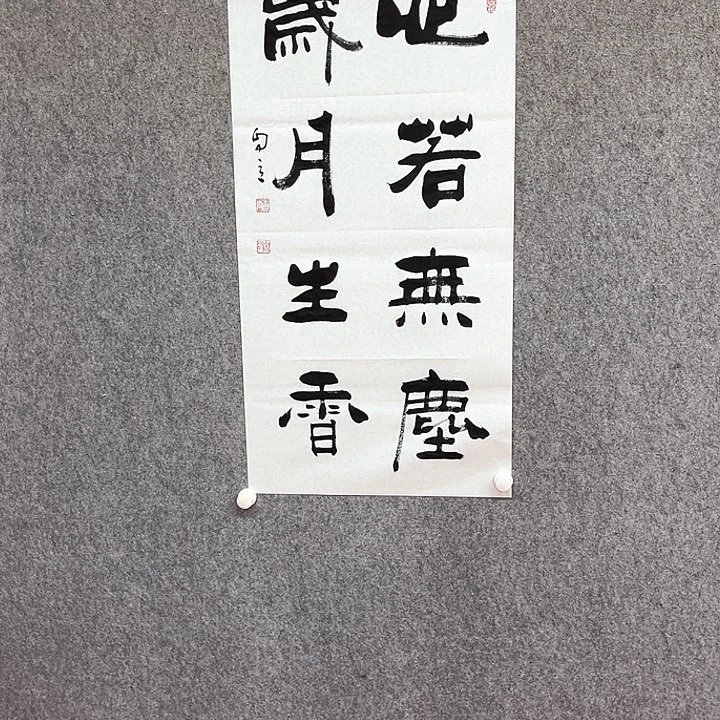 心若無塵
歲月生香